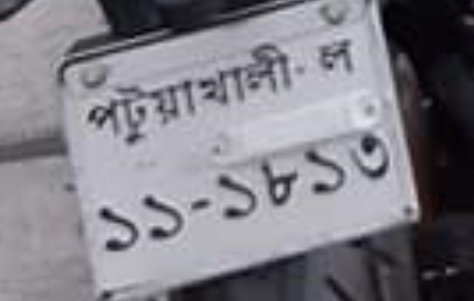 পটুয়াখালী-ল
১১-১৮১৩